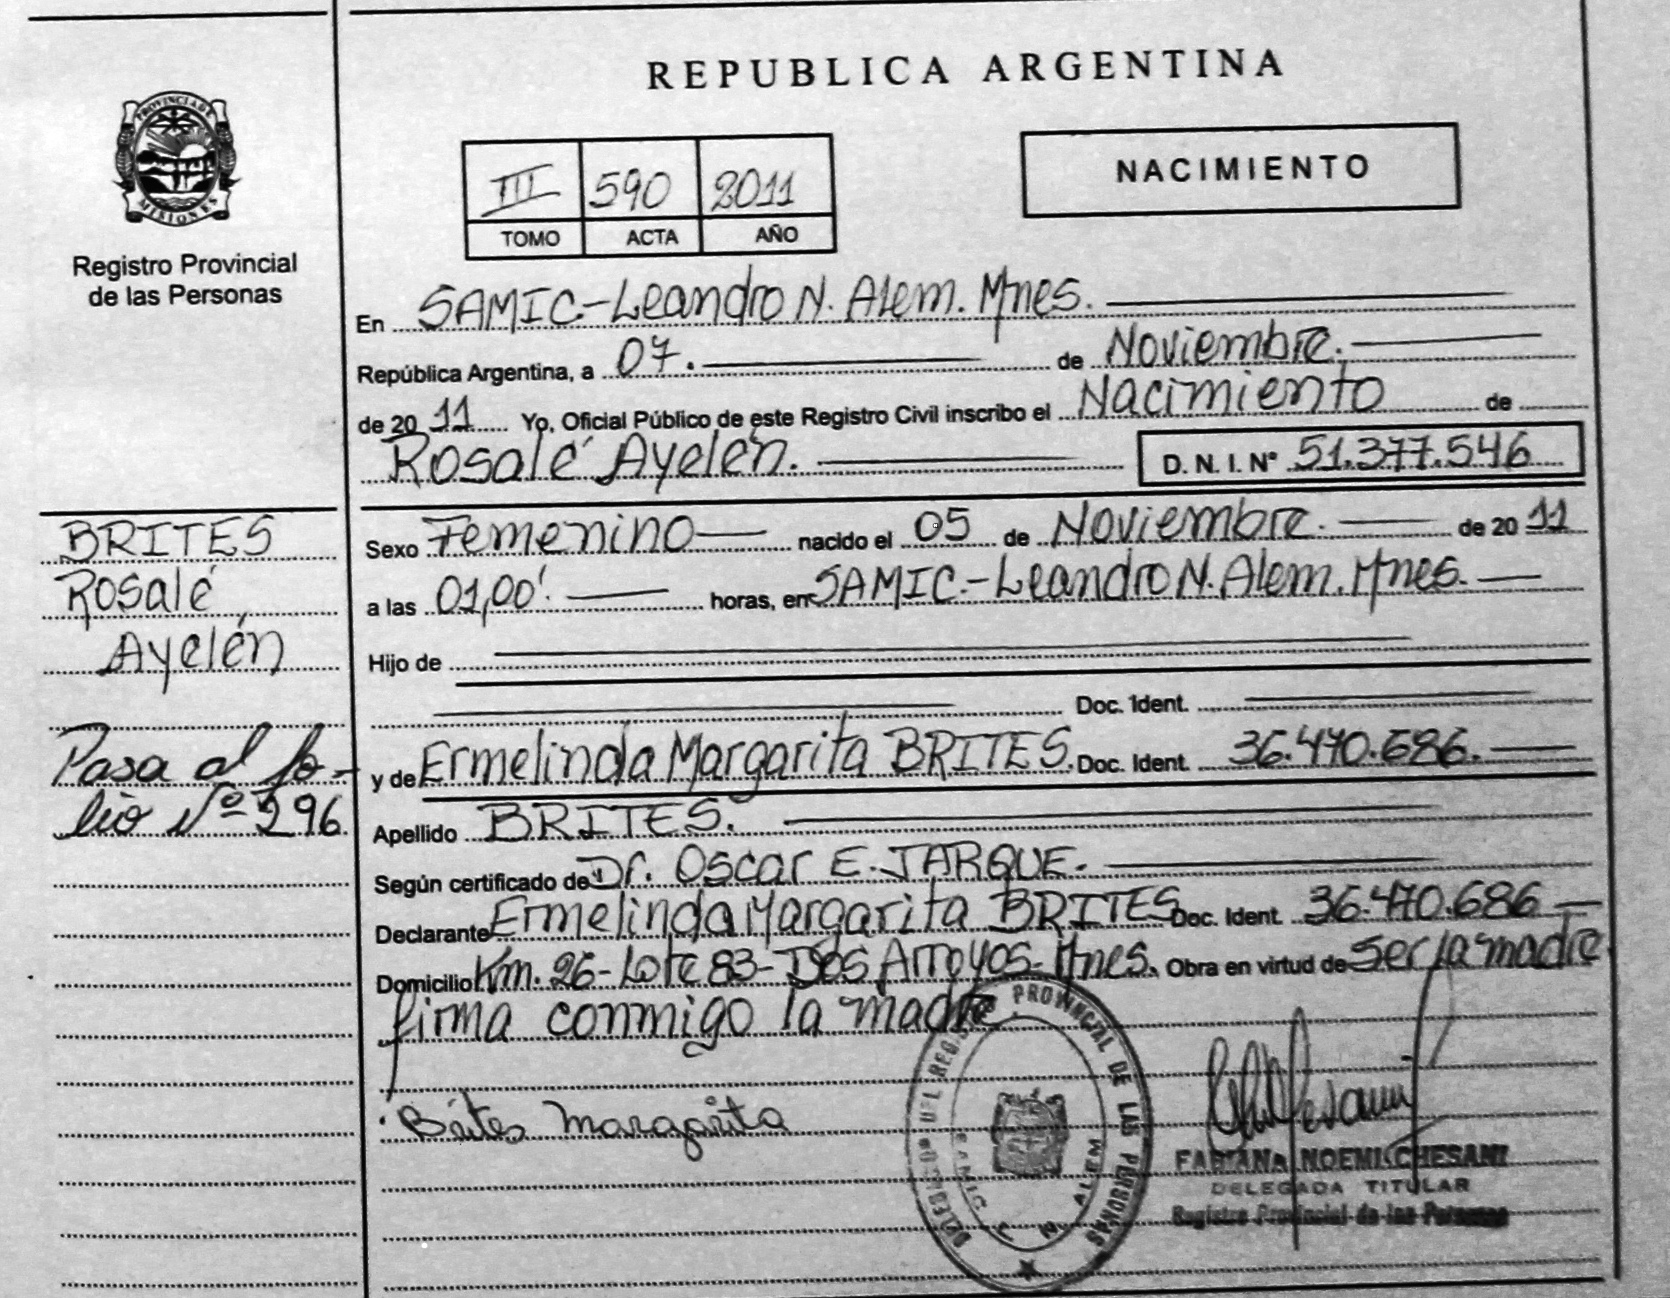 REPUBLICA ARGENTINA
PROVINCIA DE MISIONES
Registro Provincial
de las Personas
III 590 2011
TOMO ACTA AÑO
NACIMIENTO
En SAMIC-Leandro N. Alem. Mnes.
República Argentina, a 07. de Noviembre.
de 20 11 Yo, Oficial Público de este Registro Civil inscribo el Nacimiento de
Rosalé Ayelén. D. N. I. Nº 51.377.546
BRITES
Rosalé
Ayelén
Pasa al fo-
lio Nº 296
Sexo Femenino nacido el 05 de Noviembre. de 20 11
a las 01,00'. horas, en SAMIC.-Leandro N. Alem. Mnes.
Hijo de
Doc. Ident.
y de Ermelinda Margarita BRITES. Doc. Ident. 36.470.686.
Apellido BRITES.
Según certificado del Dr. Oscar E. JARQUE.
Declarante Ermelinda Margarita BRITES Doc. Ident. 36.470.686
Domicilio Km. 26-Lote 83-Dos Arroyos-Mnes. Obra en virtud de Ser la madre
firma conmigo la madre.
Brites Margarita
REG. PROVINCIAL DE LAS PERSONAS
SAMIC L. N. ALEM
FABIANA NOEMI CHESANI
DELEGADA TITULAR
Registro Provincial de las Personas